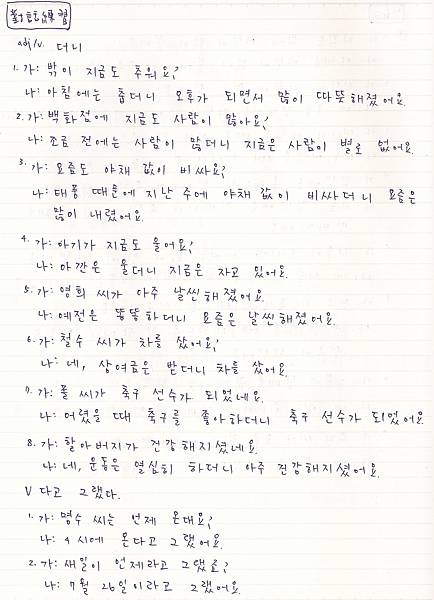 對話練習
adj/v. 더니
1. 가: 밖이 지금도 추워요?
나: 아침에는 춥더니 오후가 되면서 많이 따뜻해졌어요.
2. 가: 백화점에 지금도 사람이 많아요?
나: 조금 전에는 사람이 많더니 지금은 사람이 별로 없어요.
3. 가: 요즘도 야채 값이 비싸요?
나: 태풍 때문에 지난 주에 야채 값이 비싸더니 요즘은
많이 내렸어요.
4. 가: 아기가 지금도 울어요?
나: 아깐은 울더니 지금은 자고 있어요.
5. 가: 영희 씨가 아주 날씬해졌어요.
나: 예전은 뚱뚱하더니 요즘은 날씬해졌어요.
6. 가: 철수 씨가 차를 샀어요?
나: 네, 상여금은 받더니 차를 샀어요.
7. 가: 폴 씨가 축구 선수가 되었네요.
나: 어렸을 때 축구를 좋아하더니 축구 선수가 되었어요.
8. 가: 할아버지가 건강해지셨네요.
나: 네, 운동은 열심히 하더니 아주 건강해지셨어요.
V 다고 그랬다.
1. 가: 명수 씨는 언제 온대요?
나: 4시에 온다고 그랬어요.
2. 가: 새일이 언제라고 그랬죠?
나: 7월 26일이라고 그랬어요.